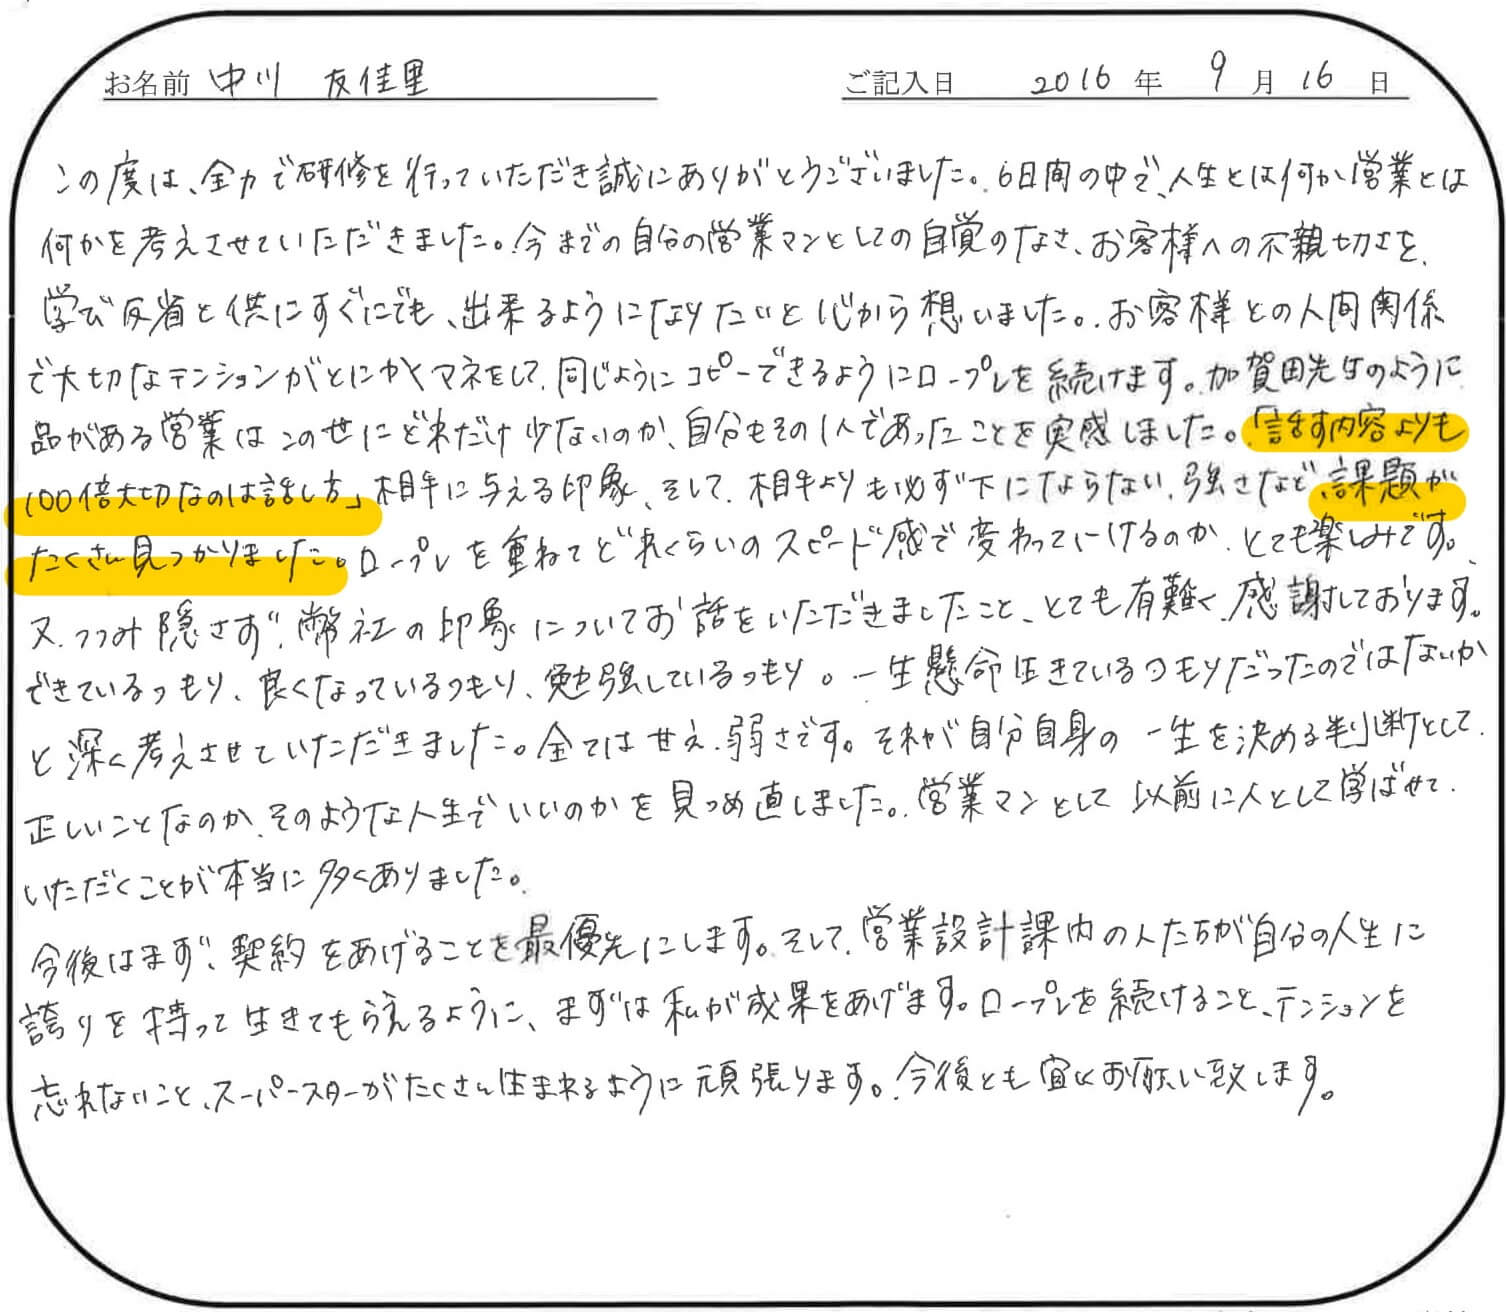 お名前 中川 友佳里 ご記入日 2016 年 9 月 16 日
この度は、全力で研修を行っていただき誠にありがとうございました。6日間の中で、人生とは何か営業とは
何かを考えさせていただきました。今までの自分の営業マンとしての自覚のなさ、お客様への不親切さを、
学び反省と供にすぐにでも、出来るようになりたいと心から想いました。お客様との人間関係
で大切なテンションがとにかくマネをして、同じようにコピーできるようにロープレを続けます。加賀田先生のように
品がある営業はこの世にどれだけ少ないのか、自分もその1人であったことを実感しました。「話す内容よりも
100倍大切なのは話し方」相手に与える印象、そして、相手よりも必ず下にならない、強さなど、課題が
たくさん見つかりました。ロープレを重ねてどれくらいのスピード感で変わっていけるのか、とても楽しみです。
又、つつみ隠さず、弊社の印象についてお話をいただきましたこと、とても有難く、感謝しております。
できているつもり、良くなっているつもり、勉強しているつもり。一生懸命生きているつもりだったのではないか
と深く考えさせていただきました。全ては甘え、弱さです。それが自分自身の一生を決める判断として、
正しいことなのか、そのような人生でいいのかを見つめ直しました。営業マンとして以前に人として学ばせて、
いただくことが本当に多くありました。
今後はまず、契約をあげることを最優先にします。そして、営業設計課内の人たちが自分の人生に
誇りを持って生きてもらえるように、まずは私が成果をあげます。ロープレを続けること、テンションを
忘れないこと、スーパースターがたくさん生まれるように頑張ります。今後とも宜しくお願い致します。